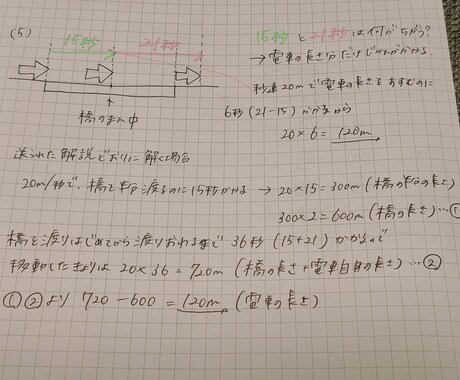 (5)
15秒
21秒
橋のまん中
15秒と21秒は何がちがう?
→電車の長さ分だけじかんがかかる。
秒速20mで電車の長さをすすむのに
6秒(21-15)かかるから
20×6=120m
送られた解説どおりに解く場合
20m/秒で、橋を半分渡るのに15秒かかる→20×15=300m(橋の半分の長さ)
300×2=600m(橋の長さ)…①
橋を渡りはじめてから渡りおわるまで36秒(15+21)かかるので
移動したきょりは20×36=720m(橋の長さ+電車自身の長さ)…②
①②より 720-600=120m(電車の長さ)